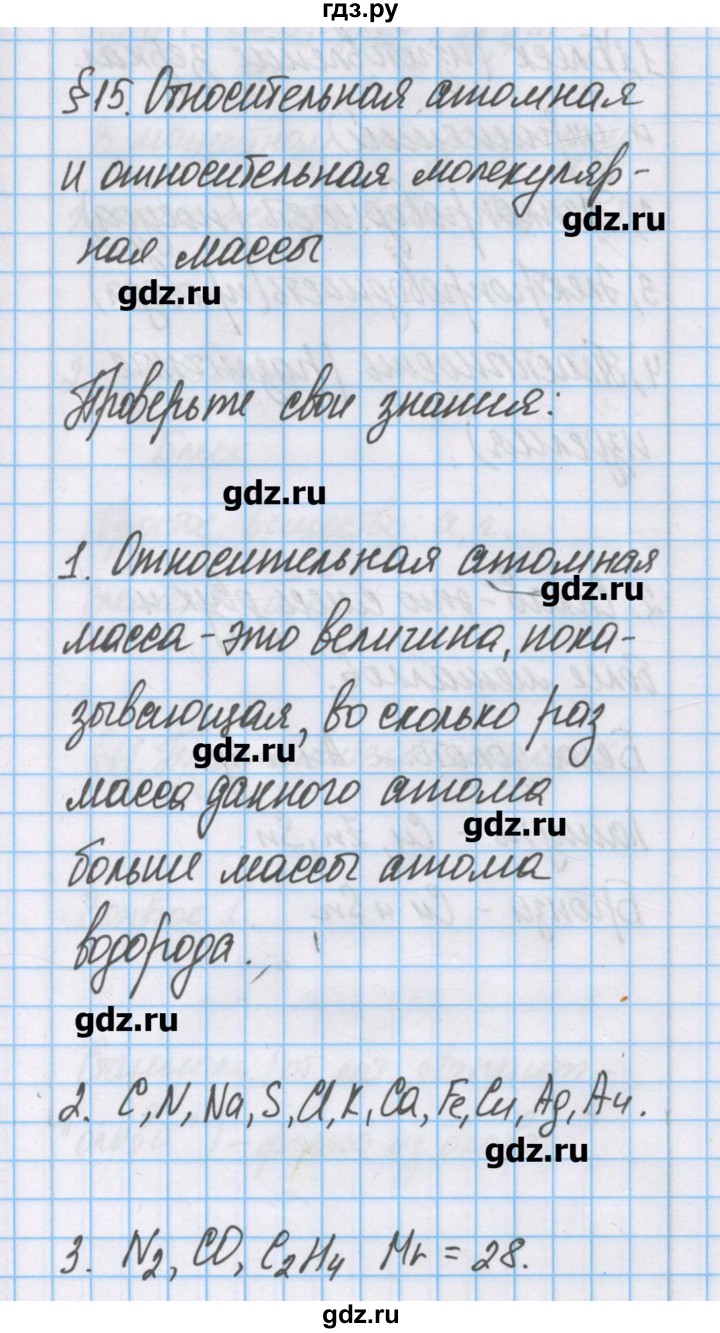 гдз.ру
§15. Относительная атомная
и относительная молекуляр-
gdz.ru
ная массы
gdz.ru
Проверьте свои знания:
gdz.ru
1. Относительная атомная
gdz.ru
масса - это величина, пока-
зывающая, во сколько раз
gdz.ru
масса данного атома
gdz.ru
больше массы атома
водорода.
gdz.ru
2. C, N, Na, S, Cl, K, Ca, Fe, Cu, Ag, Au.
gdz.ru
3. N₂, CO, C₂H₄ Mr = 28.
gdz.ru